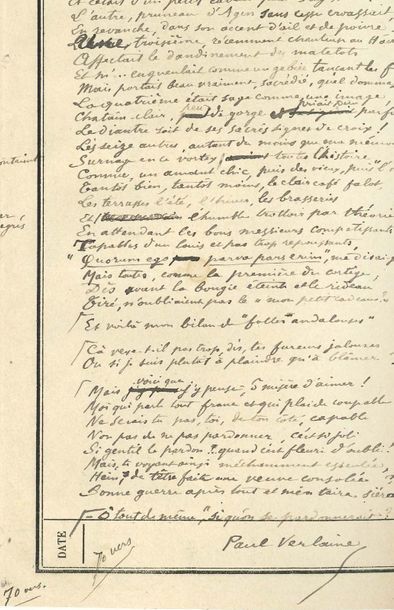 Et c'étais d'un petit
L'autre, pruneau d'Agen sans cesse croassait
En revanche, dans son accent d'ail et de poivre
Une, troisième, récemment chanteuse au Havre
Affectait le dandinement des matelots
Et m'... engueulait comme un gabier tançant les
Mais portait beau vraiment, sacrédié, quel dommage
La quatrième était sage comme une image,
Châtain clair, peu de gorge et priait
La diantre soit de ses sacrés signes de croix !
Les seize autres, autant de moins que ma mémoire
Surnage en ce vortex, toute l'histoire
Comme, un amant chic, puis des vieux, puis
Tantôt bien, tantôt moins, le clair café falot
Les terrasses l'été, l'hiver, les brasseries
Et l'humble trottoir par théories
En attendant les bons messieurs compatissants
Capables d'un louis et pas trop repoussants
"Quorum ego parva pars erim", me disais-je
Mais toutes, comme la première du cortège,
Dès avant la bougie éteinte et le rideau
Tiré, n'oubliaient pas le « mon petit cadeau »
Et voilà mon bilan de "folles andalouses"
Ça vexe-t-il pas trop, dis, tes fureurs jalouses
Ou si je suis plutôt à plaindre qu'à blâmer
Mais voici que j'y pense - Ô misère d'aimer !
Moi qui parle tout franc et qui plaide coupable
Ne serais-tu pas, toi, de ton côté, capable
Non pas de ne pas pardonner, c'est si joli
Si gentil le pardon ! quand c'est fleuri d'oubli !
Mais, te voyant ainsi méchamment
Hein, de t'être faite une veuve consolée ?
Bonne guerre après tout et m'en taire
- Ô tout de même, si qu'on se pardonnerait ?
Paul Verlaine
DATE
70 vers
70 vers.